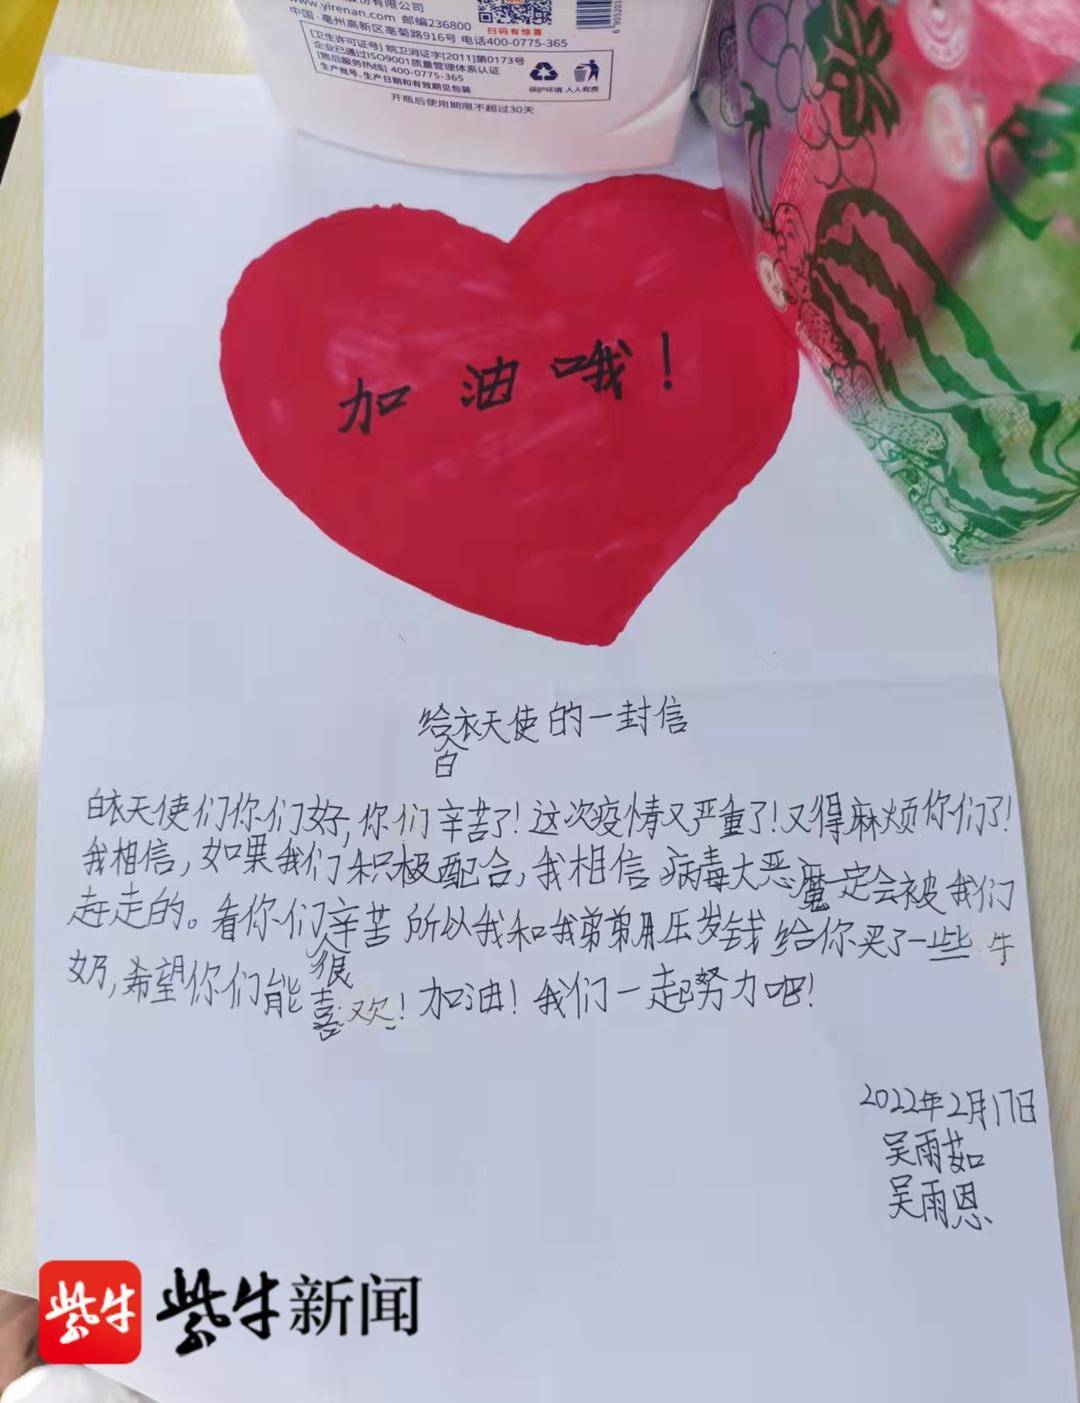 www.yirenan.com 邮编236800
中国·亳州高新区亳菊路916号 电话400-0775-365
扫码有惊喜
[卫生许可证号] 皖卫消证字[2011]第0173号
企业已通过ISO9001质量管理体系认证
[售后服务热线] 400-0775-365
生产批号、生产日期和有效期见包装
保护环境 人人有责
开瓶后使用期限不超过30天
加油哦!
给白衣天使的一封信
白衣天使们你们好,你们辛苦了!这次疫情又严重了!又得麻烦你们了!
我相信,如果我们积极配合,我相信病毒大恶魔一定会被我们
赶走的。看你们很辛苦所以我和我弟弟用压岁钱给你买了一些牛
奶,希望你们能喜欢!加油!我们一起努力吧!
2022年2月17日
吴雨茹
吴雨恩
紫牛 紫牛新闻